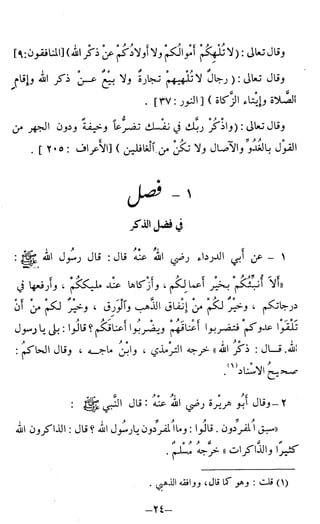 وقال تعالى : ( لا تُلْهِكُمْ أَمْوالُكُم ولا أولادُكُمْ عنْ ذكْر الله ) [المنافقون : ٩]
وقال تعالى : ( رجالٌ لا تُلْهيهم تجارةٌ ولا بيْعٌ عن ذكر الله وإقام
الصَّلاة وإيتاء الزَّكاة ) [ النور : ٣٧ ] .
وقال تعالى : ( واذكُرْ ربَّك في نفسك تضرُّعاً وخيفةً ودون الجهر من
القول بالغُدُوِّ والآصال ولا تكُنْ من الغافلين ) [ الأعراف : ٢٠٥ ] .
١ - فصل
في فضل الذكر
١ - عن أبي الدرداء رضي اللهُ عنْهُ قال : قال رسُول الله ﷺ :
«ألَا أُنَبِّئُكُمْ بخيْر أعمالكُم ، وأزْكاها عنْد مليككُمْ ، وأرفعها في
درجاتكم ، وخيْرٌ لكُمْ منْ إنفاق الذَّهب والْوَرِق ، وخيْرٌ لكُم منْ أنْ
تلْقَوْا عدوكُمْ فتضربوا أعْناقهُمْ ويضْربُوا أعناقكُم ؟ قالُوا : بلى يا رسول
الله . قـال : ذكْرُ الله » خرجه الترمذي ، وابنُ ماجـه ، وقال الحاكمُ :
صحيحُ الإسْناد(١) .
٢ - وقال أبُو هريْرة رضي اللهُ عنْهُ : قال النَّبي ﷺ :
«سبق المُفرِّدون . قالُوا : وما المُفرِّدون يا رسُول الله ؟ قال : الذاكرون الله
كثيرًا والذَّاكرات » خرَّجهُ مُسْلم .
(١) قلت : وهو كما قال، ووافقه الذهبي .
-٢٤-